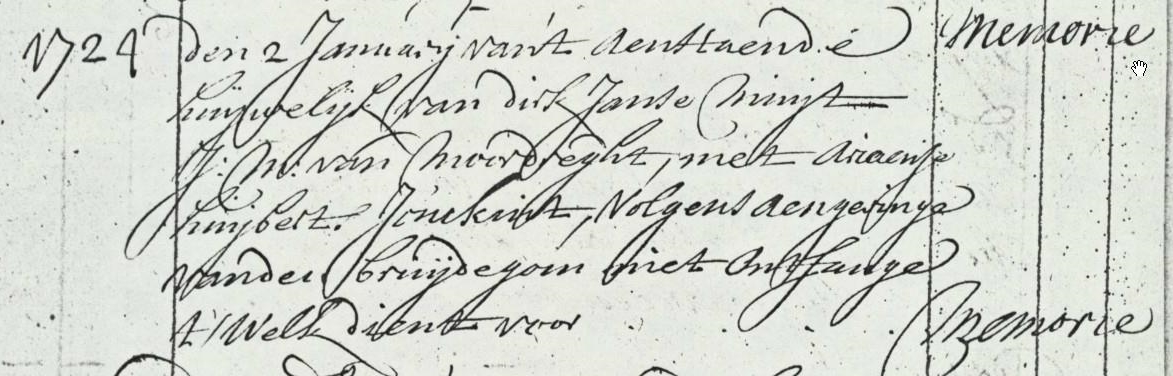 1724 den 2 Januarij van't aenstaende Memorie
huijwelijk van dirk Janse Minijt
J: M: van Moordreght, met Ariaentje
huijbert. Jonkint, Volgens aengevinge
vanden bruijdegom niet ontfange
t' Welk dient voor Memorie